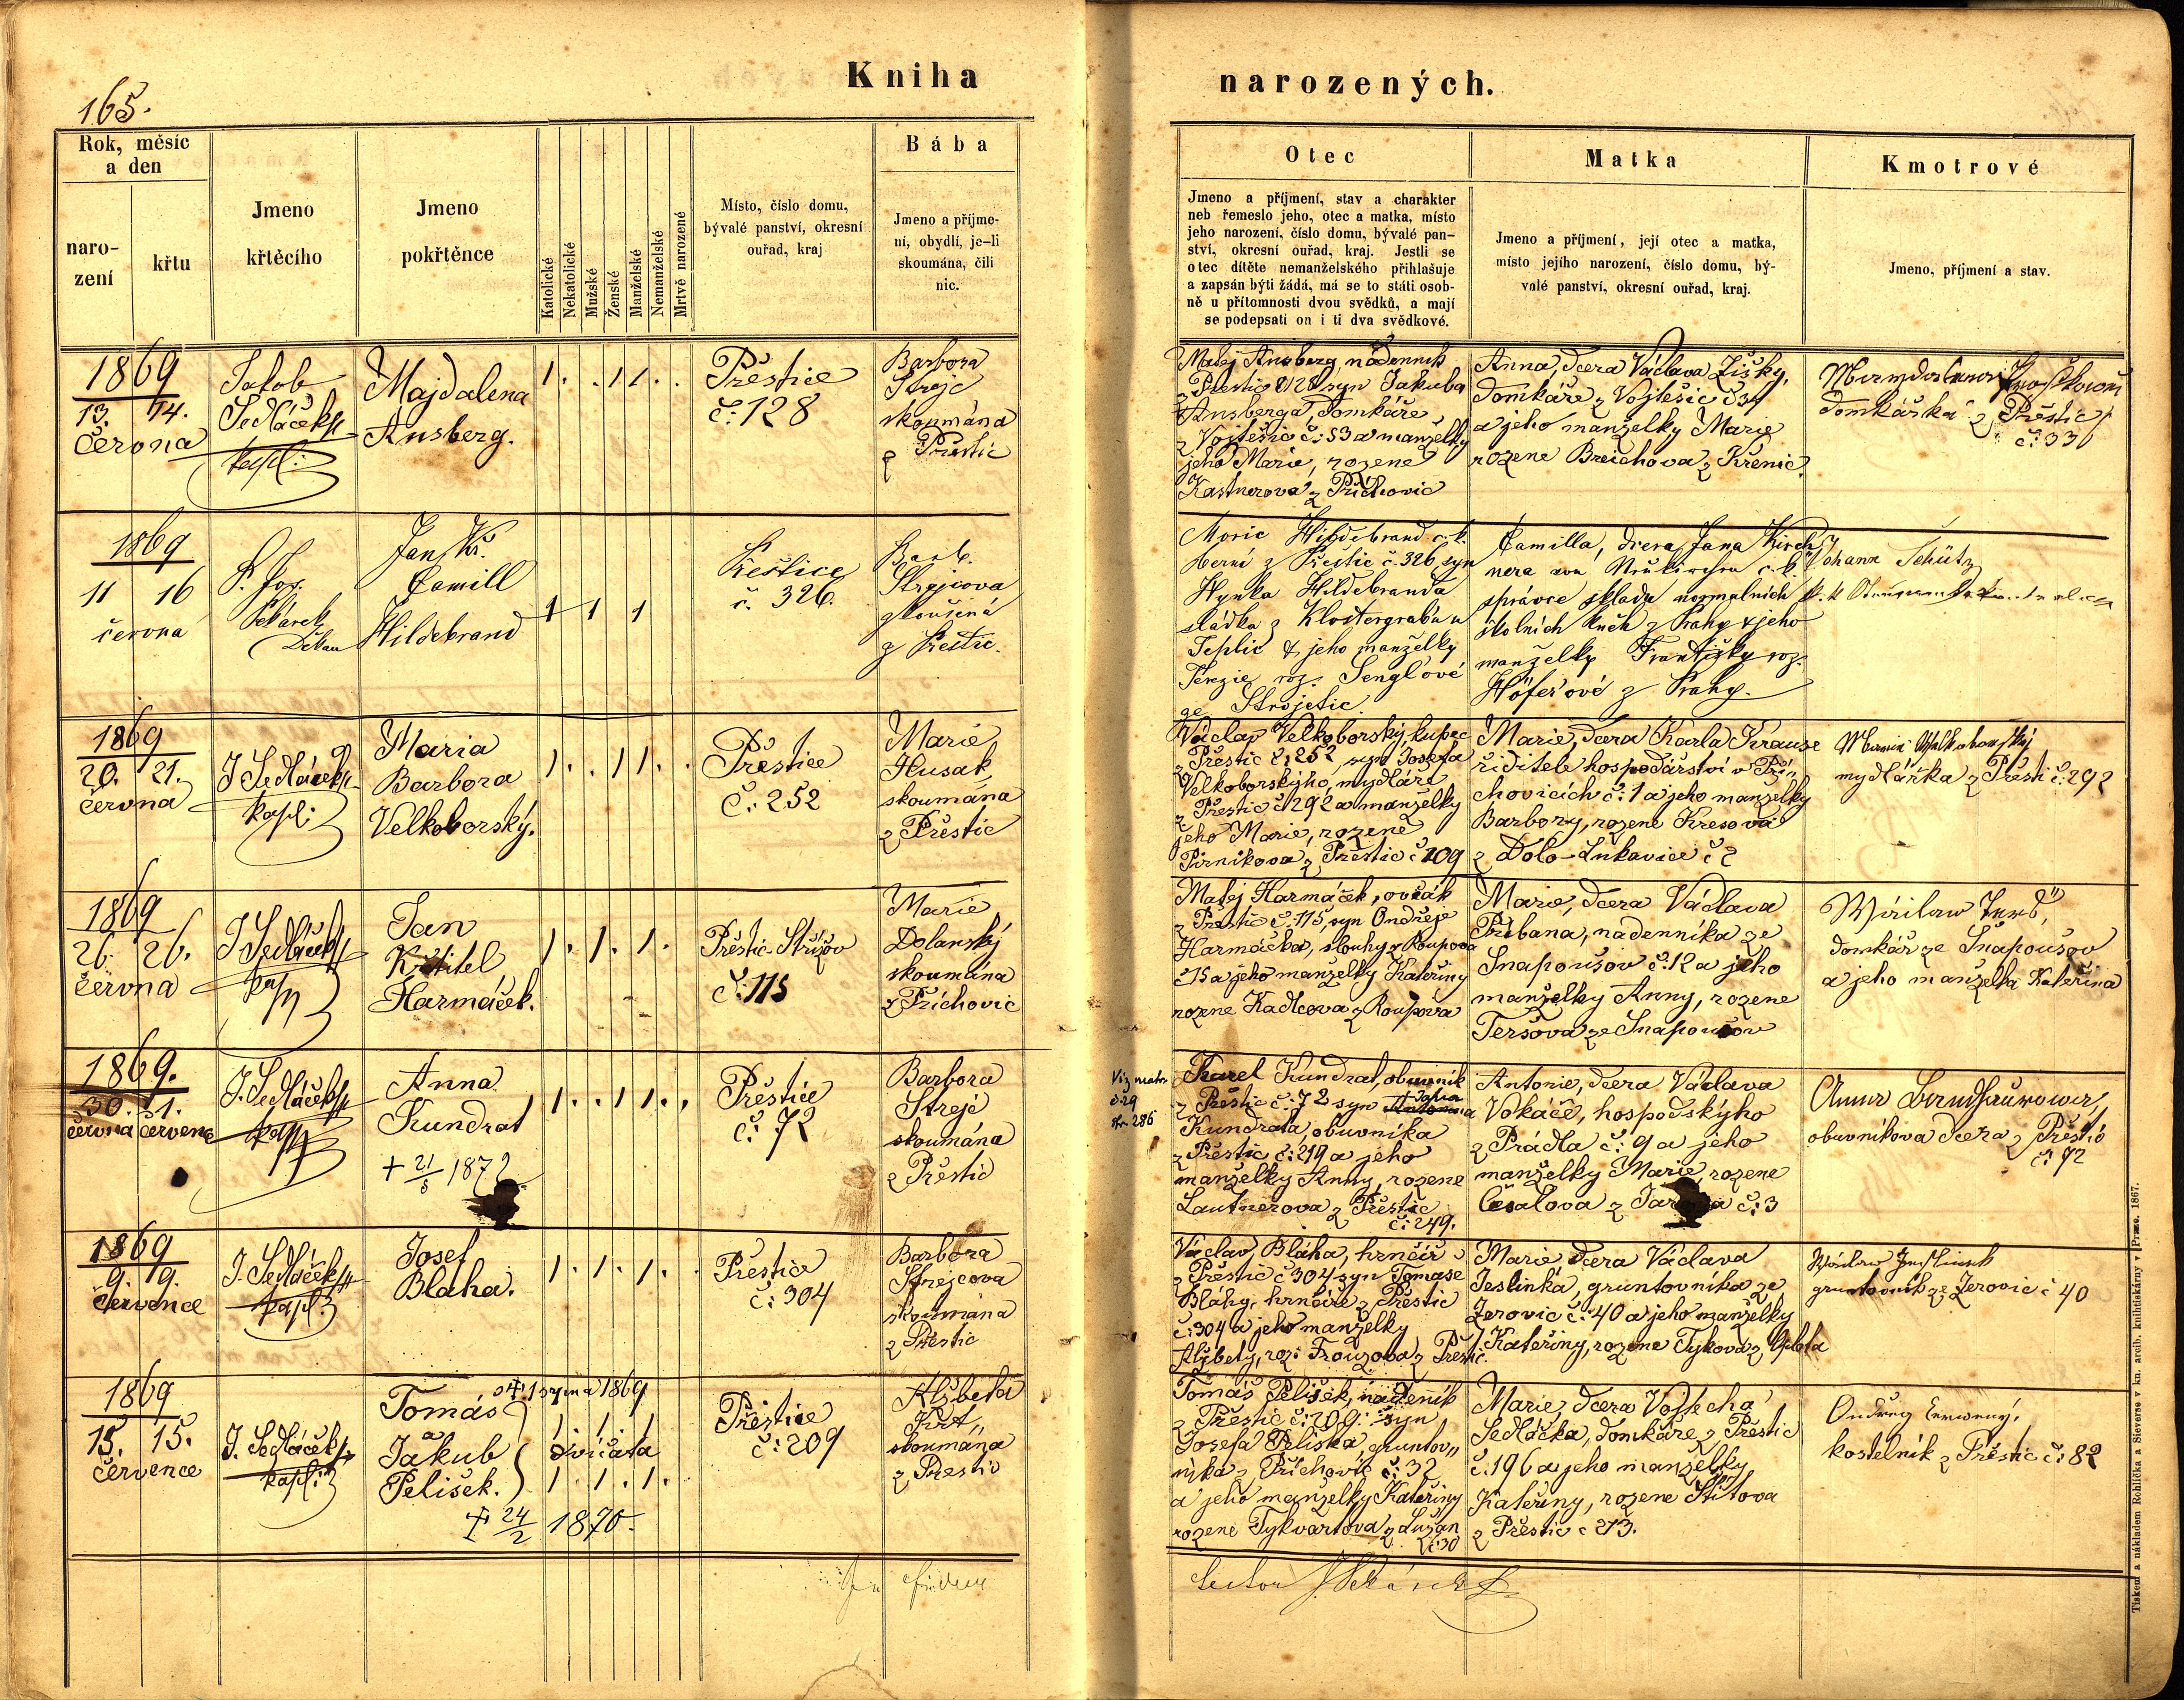 165.
Kniha
narozených.
Rok, měsíc
a den
naro-
zení
křtu
Jmeno
křtěcího
Jmeno
pokřtěnce
Katolické
Nekatolické
Mužské
Ženské
Manželské
Nemanželské
Mrtvě narozené
Místo, číslo domu,
bývalé panství, okresní
ouřad, kraj
Bába
Jmeno a příjme-
ní, obydlí, je-li
skoumána, čili
nic.
Otec
Jmeno a příjmení, stav a charakter
neb řemeslo jeho, otec a matka, místo
jeho narození, číslo domu, bývalé pan-
ství, okresní ouřad, kraj. Jestli se
otec dítěte nemanželského přihlašuje
a zapsán býti žádá, má se to státi osob-
ně u přítomnosti dvou svědků, a mají
se podepsati on i ti dva svědkové.
Matka
Jmeno a příjmení, její otec a matka,
místo jejího narození, číslo domu, bý-
valé panství, okresní ouřad, kraj.
Kmotrové
Jmeno, příjmení a stav.
1869
13. 14.
června
Jakob
Sedláček
kapl:
Majdalena
Ansberg.
1. . 1 1. .
Přestice
č: 128
Barbora
Strejc
skoumána
z Přestic
Matej Ansberg, nádenník
z Přestic č 128 syn Jakuba
Ansberga domkáře
z Vojtěšic č: 53 a manželky
jeho Marie, rozene
Kastnerova z Příchovic
Anna, dcera Václava Žišky,
domkáře z Vojtěšic č 34
a jeho manželky Marie
rozene Breichova z Křenic.
domkářka z Přestic
č: 33
1869
11 16
června
P. Jos.
Pekárek
Děkan
Jan Kř.
Camill
Hildebrand
1 1 1
Přeštice
č. 326.
Barb.
Strejcova
zkoušená
z Přeštic.
Moric Hildebrand c. k.
berní z Přeštic č. 326, syn
Hynka Hildebranda
sládka z Klostergrabu u
Teplic & jeho manželky
Terezie roz. Senglové
ze Strojetic
Camilla, dcera Jana Kirch
nera von c. k.
správce skladu normalních
školních kněh z Prahy & jeho
manželky Františky roz.
Höferové z Prahy.
Johann Schütz
k. k.
1869
20. 21.
června
J Sedláček
kapl:
Maria
Barbora
Velkoborský.
1. . 1 1. .
Přestice
č: 252
Marie
Husak
skoumána
z Přestic
Václav Velkoborský, kupec
z Přestic č: 252, syn Josefa
Velkoborskýho, mydláře
z Přestic č 292 a manželky
jeho Marie, rozene
Pirnikova z Přestic č 209
Marie, dcera Karla Krause
řiditele hospodářství v Pří-
chovicích č: 1 a jeho manželky
Barbory, rozene Kresova
z Dolo-Lukavice č 2
mydlářka z Přesti č: 292
1869
26. 26.
června
J Sedláček
kapl
Jan
Křtitel
Harmáček.
1. 1. 1.
Přěstic-Střížov
č: 115
Marie
Dolanský
skoumána
z Příchovic
Matej Harmáček, ovčák
z Přestic č: 115, syn Ondřeje
Harmáčka, slouhy z Roupova
č 15 a jeho manželky Kateřiny
rozene Kadlcova z Roupova
Marie, dcera Václava
Přibana, nadenníka ze
Snapoušov č: 12 a jeho
manželky Anny, rozene
Teršova ze Snapoušov
domkář ze Snapoušov
a jeho manželka Kateřina
1869.
30. 1.
června července
J. Sedláček
kapl
Anna
Kundrat
+ 21/5 1872
1. . 1 1. .
Přestice
č: 72
Barbora
Strejč
skoumána
z Přestic
Viz matr.
č 29
str. 286
Karel Kundrat, obuvník
z Přestic č: 72 syn
Kundrata, obuvníka
z Přestic č: 219 a jeho
manželky Anny, rozene
Lautnerova z Přestic
č: 249.
Antonie, dcera Václava
Vokáče, hospodskýho
z Prádla č: 9 a jeho
manželky Marie, rozene
Česalova z č: 3
obuvníkova dcera z Přestic
č: 72
1869
9. 9.
července
J. Sedláček
kapl:
Josef
Blaha.
1. 1. 1. .
Přestice
č: 304
Barbora
Strejcova
skoumána
z Přestic
Václav Bláha, hrnčíř
z Přestic č 304 syn Tomase
Bláhy, hrnčíře z Přestic
č: 304 a jeho manželky
Alžbety, roz: Frouzova z Přestic.
Marie, dcera Václava
Jeslínka, gruntovníka ze
Zerovic č: 40 a jeho manželky
Kateřiny, rozene Tykova z
gruntovník ze Zerovic č 40
1869
15. 15.
července
J. Sedláček
kapl:
Tomás
a
Jakub
Pelišek.
1 srpna 1869
1. 1. 1
dvíčata
1. 1. 1.
24/2 1870.
Přestice
č: 209
Alžbeta
skoumána
z Přestic
Tomáš Pelišek, nádeník
z Přestic č: 209: syn
Josefa Peliška, gruntov„
níka z Příchovic č: 32
a jeho manželky Kateřiny
rozene Tykvartova z Lužan
č: 30
Marie, dcera Vojtecha
Sedláčka, domkáře z Přestic
č: 196 a jeho manželky
Kateřiny, rozene Štitova
z Přestic č 213.
kostelník z Přestic č: 82
Tiskem a nákladem Rohlíčka a Sieverse v kn. arcib. knihtiskárny v Praze. 1867.